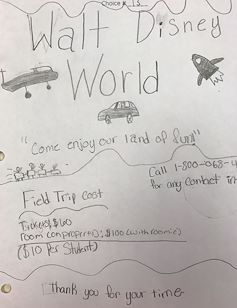 Choice # 13
Walt Disney
World
"Come enjoy our land of fun!"
Call 1-800-068-4
for any contact in
Field Trip Cost
Tickets: $160
room on property: $100 (with roomie)
($10 Per Student)
Thank you for your time